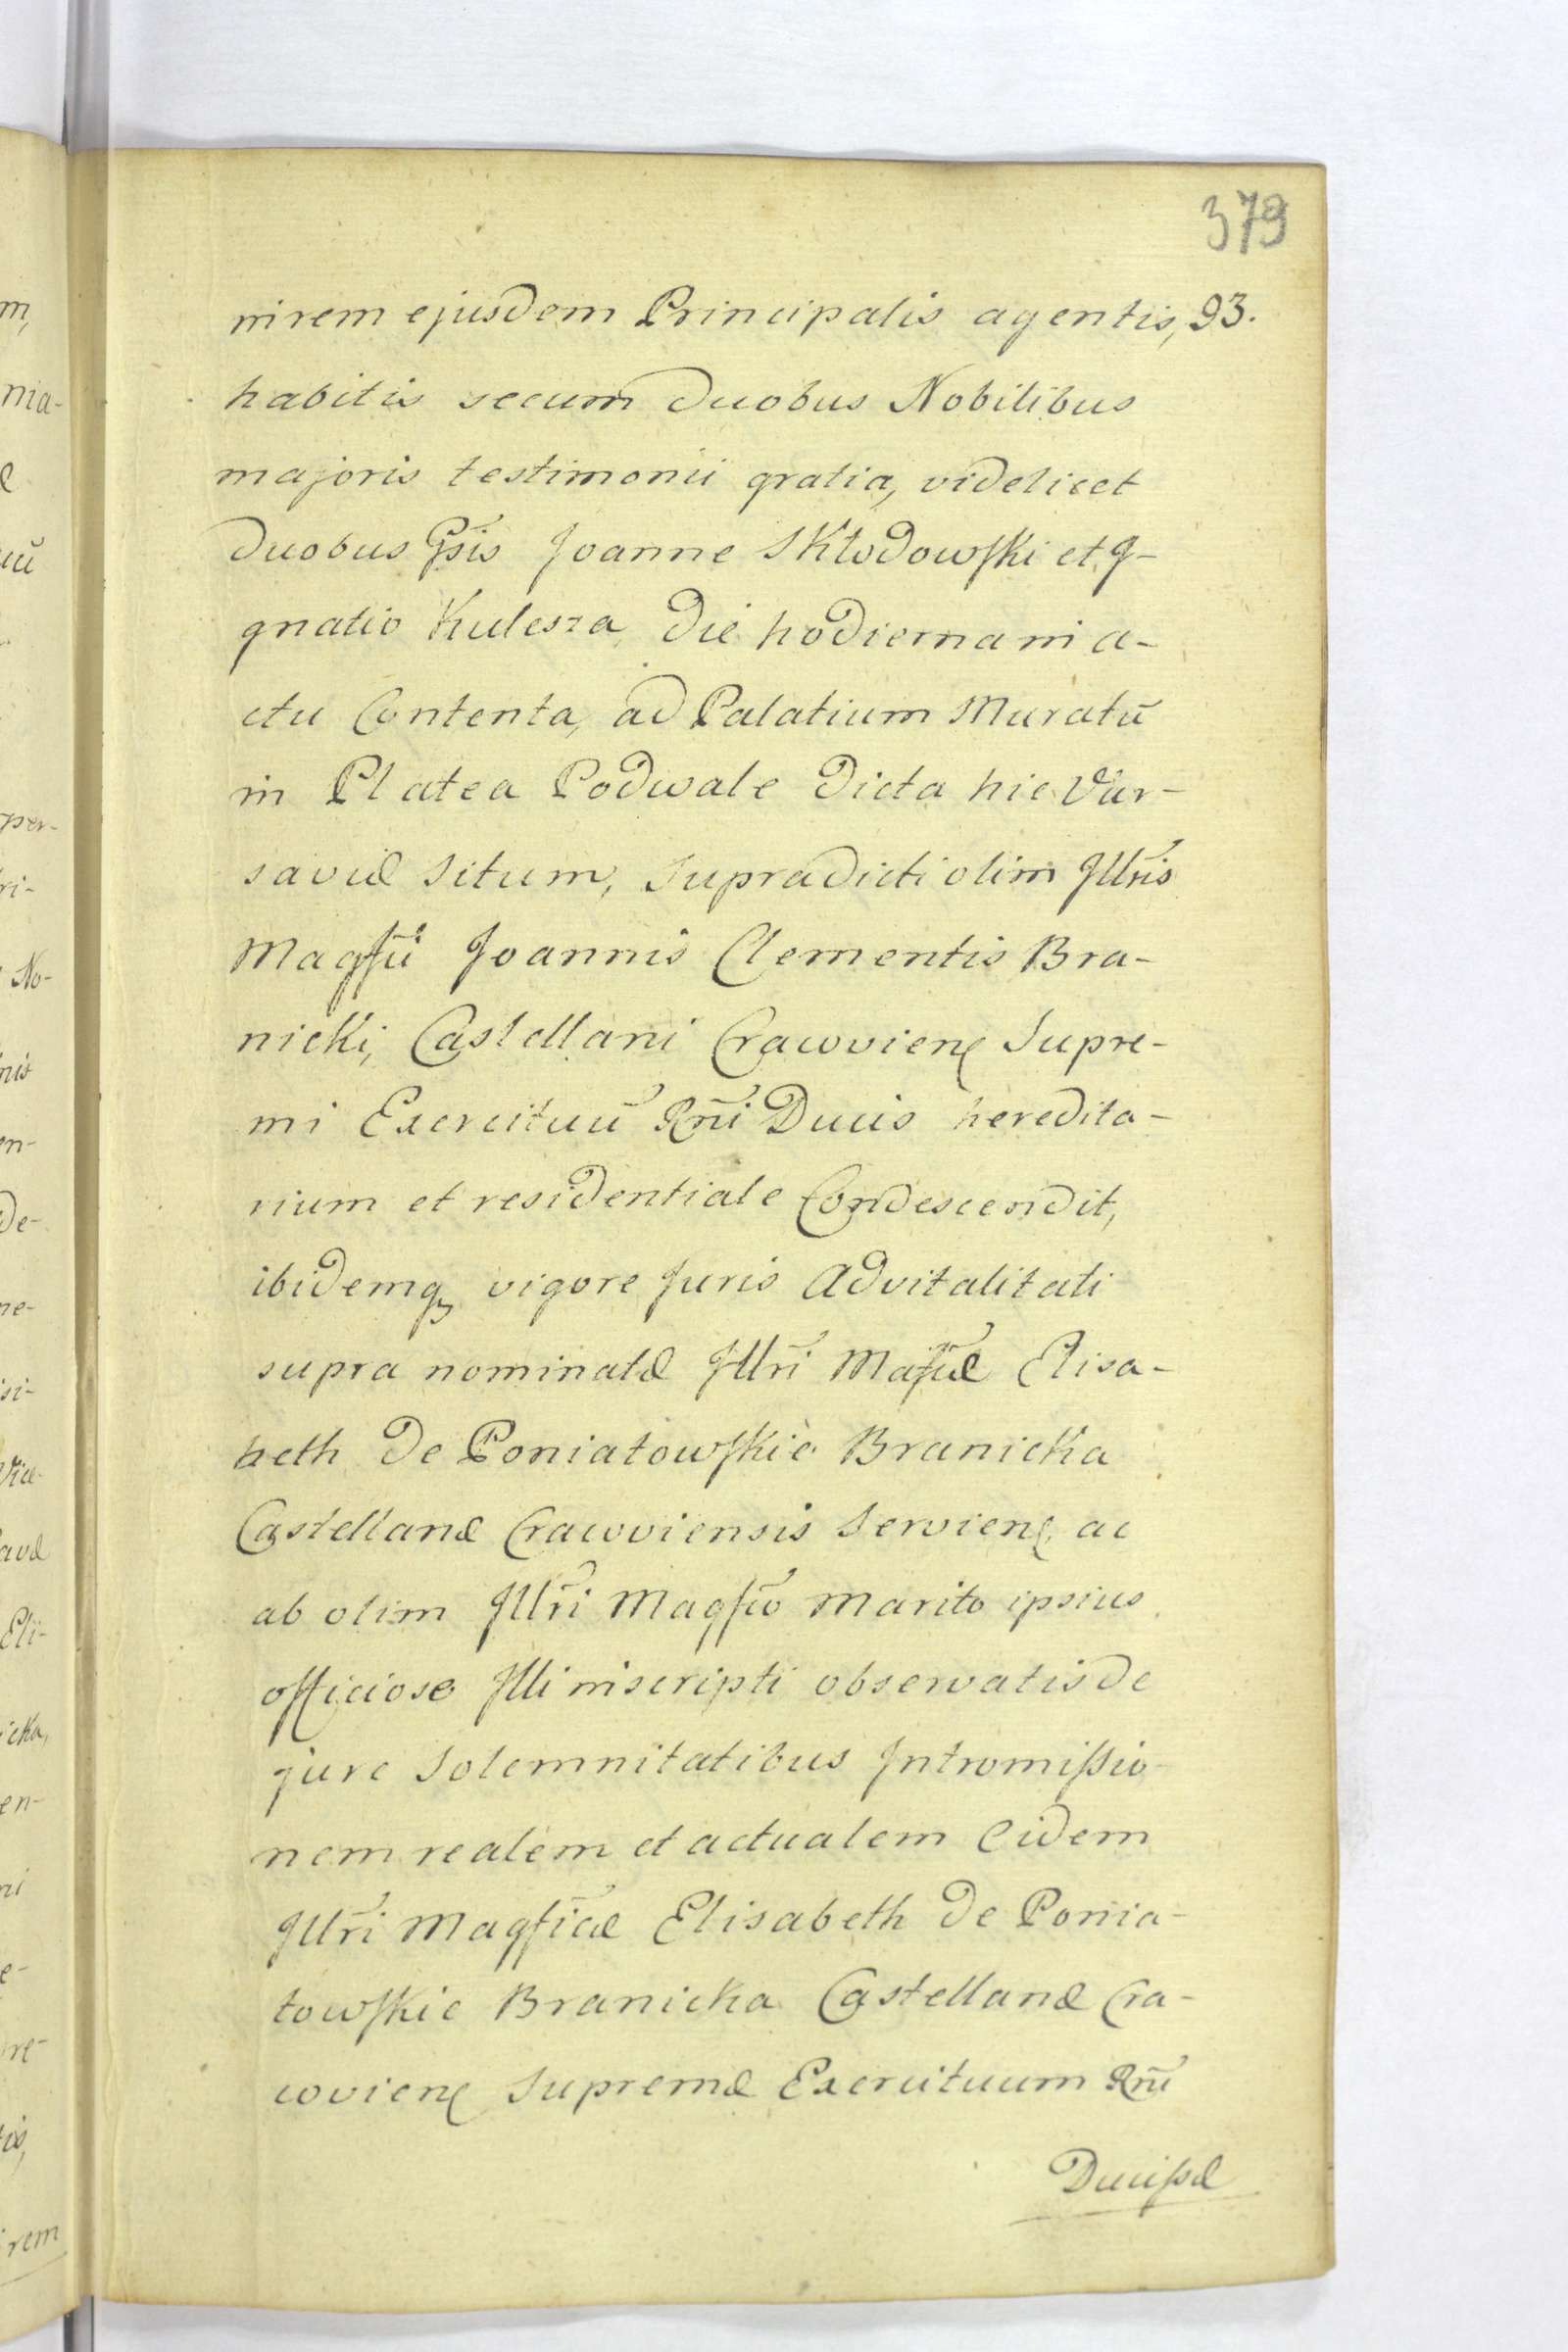 379
in rem ejusdem Principalis agentis, 93.
habitis secum duobus Nobilibus
majoris testimonii gratia, videlicet
duobus Gsis Joanne Skłodowski et J-
gnatio Kulesza die hodierna in a-
ctu Contenta, ad Palatium Muratū
in Platea Podwale dicta hic Var-
saviæ situm, supradicti olim Jllris
Magfci Joannis Clementis Bra-
nicki, Castellani Cracovien Supre-
mi Exercituū Rni Ducis heredita-
rium et residentiale Condescendit,
ibidemq vigore Juris Advitalitati
supra nominatæ Jllri Magfcæ Elisa-
beth de Poniatowskie Branicka
Castellanæ Cracoviensis Servien ac
ab olim Jllri Magfco Marito ipsius
officiose Jlli inscripti observatis de
jure Solemnitatibus Jntromissio-
nem realem et actualem Eidem
Jllri Magficæ Elisabeth de Ponia-
towskie Branicka Castellanæ Cra-
covien Supremæ Exercituum Rni
Ducissæ
m,
nia-
uū
per-
ri-
No-
nis
en-
de-
ne-
isi-
avæ
Eli-
icka,
en-
ni
e-
re-
rem